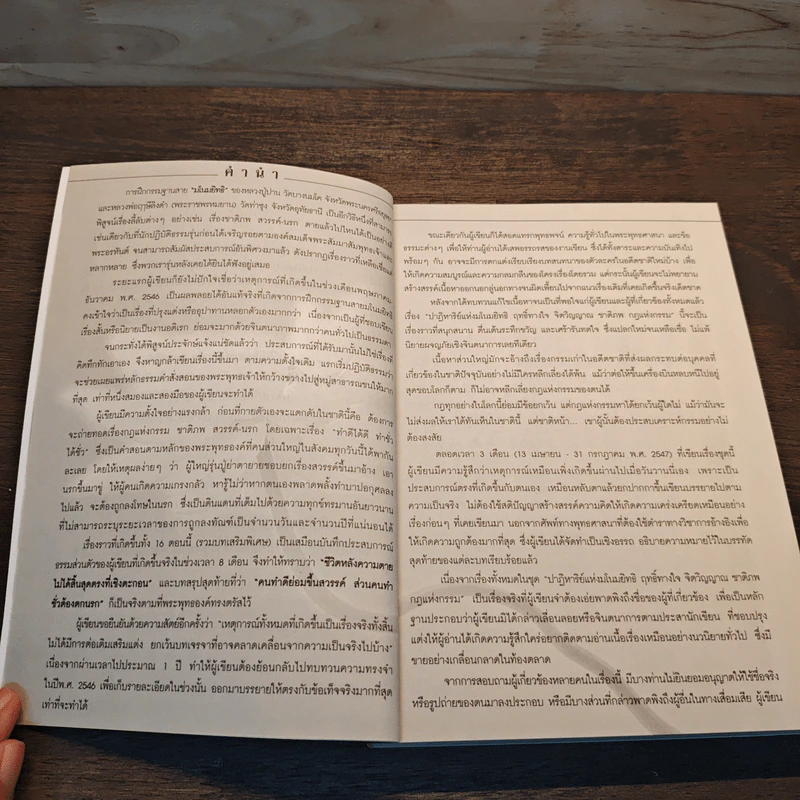 คำนำ
การฝึกกรรมฐานสาย "มโนมยิทธิ" ของหลวงปู่ปาน วัดบางนมโค จังหวัดพระนครศรีอยุธยา
และหลวงพ่อฤๅษีลิงดำ (พระราชพรหมยาน) วัดท่าซุง จังหวัดอุทัยธานี เป็นอีกวิธีหนึ่งที่สามารถ
พิสูจน์เรื่องลี้ลับต่างๆ อย่างเช่น เรื่องชาติภพ สวรรค์-นรก ตายแล้วไปไหนได้เป็นอย่างดี
เช่นเดียวกับที่นักปฏิบัติธรรมรุ่นก่อนได้เจริญรอยตามองค์สมเด็จพระสัมมาสัมพุทธเจ้าและ
พระอรหันต์ จนสามารถสัมผัสประสบการณ์อันพิศวงมาแล้ว ดังปรากฏเรื่องราวที่เหลือเชื่อ
หลากหลาย ซึ่งพวกเรารุ่นหลังเคยได้ยินได้ฟังอยู่เสมอ
ระยะแรกผู้เขียนก็ยังไม่ปักใจเชื่อว่าเหตุการณ์ที่เกิดขึ้นในช่วงเดือนพฤษภาคม-
ธันวาคม พ.ศ. 2546 เป็นผลพลอยได้อันแท้จริงที่เกิดจากการฝึกกรรมฐานสายมโนมยิทธิ
คงเข้าใจว่าเป็นเรื่องที่ปรุงแต่งหรืออุปาทานหลอกตัวเองมากกว่า เนื่องจากเป็นผู้ที่ชอบเขียน
เรื่องสั้นหรือนิยายเป็นงานอดิเรก ย่อมจะมากด้วยจินตนาภาพมากกว่าคนทั่วไปเป็นธรรมดา
จนกระทั่งได้พิสูจน์ประจักษ์แจ้งแน่ชัดแล้วว่า ประสบการณ์ที่ได้รับมานั้นไม่ใช่เรื่องที่
คิดทึกทักเอาเอง จึงหาญกล้าเขียนเรื่องนี้ขึ้นมา ตามความตั้งใจเดิม แรกเริ่มปฏิบัติธรรมว่า
จะช่วยเผยแพร่หลักธรรมคำสั่งสอนของพระพุทธเจ้าให้กว้างขวางไปสู่หมู่สาธารณชนให้มาก
ที่สุด เท่าที่หนึ่งสมองและสองมือของผู้เขียนจะทำได้
ผู้เขียนมีความตั้งใจอย่างแรงกล้า ก่อนที่กายตัวเองจะแตกดับในชาตินี้คือ ต้องการ
จะถ่ายทอดเรื่องกฎแห่งกรรม ชาติภพ สวรรค์-นรก โดยเฉพาะเรื่อง "ทำดีได้ดี ทำชั่ว
ได้ชั่ว" ซึ่งเป็นคำสอนตามหลักของพระพุทธองค์ที่คนส่วนใหญ่ในสังคมทุกวันนี้ได้พากัน
ละเลย โดยให้เหตุผลง่ายๆ ว่า ผู้ใหญ่รุ่นปู่ย่าตายายชอบยกเรื่องสวรรค์ขึ้นมาอ้าง เอา
นรกขึ้นมาขู่ ให้ผู้คนเกิดความเกรงกลัว หารู้ไม่ว่าหากตนเองพลาดพลั้งทำบาปอกุศลลง
ไปแล้ว จะต้องถูกลงโทษในนรก ซึ่งเป็นดินแดนที่เต็มไปด้วยความทุกข์ทรมานอันยาวนาน
ที่ไม่สามารถระบุระยะเวลาของการถูกลงทัณฑ์เป็นจำนวนวันและจำนวนปีที่แน่นอนได้
เรื่องราวที่เกิดขึ้นทั้ง 16 ตอนนี้ (รวมบทเสริมพิเศษ) เป็นเสมือนบันทึกประสบการณ์
ธรรมส่วนตัวของผู้เขียนที่เกิดขึ้นจริงในช่วงเวลา 8 เดือน จึงทำให้ทราบว่า "ชีวิตหลังความตาย
ไม่ได้สิ้นสุดตรงที่เชิงตะกอน" และบทสรุปสุดท้ายที่ว่า "คนทำดีย่อมขึ้นสวรรค์ ส่วนคนทำ
ชั่วต้องตกนรก" ก็เป็นจริงตามที่พระพุทธองค์ทรงตรัสไว้
ผู้เขียนขอยืนยันด้วยความสัตย์อีกครั้งว่า "เหตุการณ์ทั้งหมดที่เกิดขึ้นเป็นเรื่องจริงทั้งสิ้น
ไม่ได้มีการต่อเติมเสริมแต่ง ยกเว้นบทเจรจาที่อาจคลาดเคลื่อนจากความเป็นจริงไปบ้าง"
เนื่องจากผ่านเวลาไปประมาณ 1 ปี ทำให้ผู้เขียนต้องย้อนกลับไปทบทวนความทรงจำ
ในปีพ.ศ. 2546 เพื่อเก็บรายละเอียดในช่วงนั้น ออกมาบรรยายให้ตรงกับข้อเท็จจริงมากที่สุด
เท่าที่จะทำได้
ขณะเดียวกันผู้เขียนก็ได้สอดแทรกพุทธพจน์ ความรู้ทั่วไปในพระพุทธศาสนา และข้อ
ธรรมะต่างๆ เพื่อให้ท่านผู้อ่านได้เสพอรรถรสของงานเขียน ซึ่งได้ทั้งสาระและความบันเทิงไป
พร้อมๆ กัน อาจจะมีการตกแต่งเรียบเรียงบทสนทนาของตัวละครในอดีตชาติใหม่บ้าง เพื่อ
ให้เกิดความสมบูรณ์และความกลมกลืนของโครงเรื่องโดยรวม แต่กระนั้นผู้เขียนจะไม่พยายาม
สร้างสรรค์เนื้อหาออกนอกลู่นอกทางจนผิดเพี้ยนไปจากแนวเรื่องเดิมที่เคยเกิดขึ้นจริงเด็ดขาด
หลังจากได้ทบทวนแก้ไขเนื้อหาจนเป็นที่พอใจแก่ผู้เขียนและผู้ที่เกี่ยวข้องทั้งหมดแล้ว
เรื่อง "ปาฏิหาริย์แห่งมโนมยิทธิ ฤทธิ์ทางใจ จิตวิญญาณ ชาติภพ กฎแห่งกรรม" นี้จะเป็น
เรื่องราวที่สนุกสนาน ตื่นเต้นระทึกขวัญ และเคร้ารันทดใจ ซึ่งแปลกใหม่จนเหลือเชื่อ ไม่แพ้
นิยายผจญภัยเชิงจินตนาการเลยทีเดียว
เนื้อหาส่วนใหญ่มักจะอ้างถึงเรื่องกรรมเก่าในอดีตชาติที่ส่งผลกระทบต่อบุคคลที่
เกี่ยวข้องในชาติปัจจุบันอย่างไม่มีใครหลีกเลี่ยงได้พ้น แม้ว่าต่อให้ขึ้นเครื่องบินหลบหนีไปอยู่
สุดขอบโลกก็ตาม ก็ไม่อาจหลีกเลี่ยงกฎแห่งกรรมของตนได้
กฎทุกอย่างในโลกนี้ย่อมมีข้อยกเว้น แต่กฎแห่งกรรมหาได้ยกเว้นผู้ใดไม่ แม้ว่ามันจะ
ไม่ส่งผลให้เราได้ทันเห็นในชาตินี้ แต่ชาติหน้า... เขาผู้นั้นต้องประสบเคราะห์กรรมอย่างไม่
ต้องสงสัย
ตลอดเวลา 3 เดือน (13 เมษายน - 31 กรกฎาคม พ.ศ. 2547) ที่เขียนเรื่องชุดนี้
ผู้เขียนมีความรู้สึกว่าเหตุการณ์เหมือนเพิ่งเกิดขึ้นผ่านไปเมื่อวันวานนี้เอง เพราะเป็น
ประสบการณ์ตรงที่เกิดขึ้นกับตนเอง เหมือนหลับตาแล้วยกปากกาขึ้นเขียนบรรยายไปตาม
ความเป็นจริง ไม่ต้องใช้สติปัญญาสร้างสรรค์ความคิดให้เกิดความเคร่งเครียดเหมือนอย่าง
เรื่องก่อนๆ ที่เคยเขียนมา นอกจากศัพท์ทางพุทธศาสนาที่ต้องใช้ตำราทางวิชาการอ้างอิงเพื่อ
ให้เกิดความถูกต้องมากที่สุด ซึ่งผู้เขียนได้จัดทำเป็นเชิงอรรถ อธิบายความหมายไว้ในบรรทัด
สุดท้ายของแต่ละบทเรียบร้อยแล้ว
เนื่องจากเรื่องทั้งหมดในชุด "ปาฏิหาริย์แห่งมโนมยิทธิ ฤทธิ์ทางใจ จิตวิญญาณ ชาติภพ
กฎแห่งกรรม" เป็นเรื่องจริงที่ผู้เขียนจำต้องเอ่ยพาดพิงถึงชื่อของผู้ที่เกี่ยวข้อง เพื่อเป็นหลัก
ฐานประกอบว่าผู้เขียนมิได้กล่าวเลื่อนลอยหรือจินตนาการตามประสานักเขียน ที่ชอบปรุง
แต่งให้ผู้อ่านได้เกิดความรู้สึกใคร่อยากติดตามอ่านเนื้อเรื่องเหมือนอย่างนวนิยายทั่วไป ซึ่งมี
ขายอย่างเกลื่อนกลาดในท้องตลาด
จากการสอบถามผู้เกี่ยวข้องหลายคนในเรื่องนี้ มีบางท่านไม่ยินยอมอนุญาตให้ใช้ชื่อจริง
หรือรูปถ่ายของตนมาลงประกอบ หรือมีบางส่วนที่กล่าวพาดพิงถึงผู้อื่นในทางเสื่อมเสีย ผู้เขียน